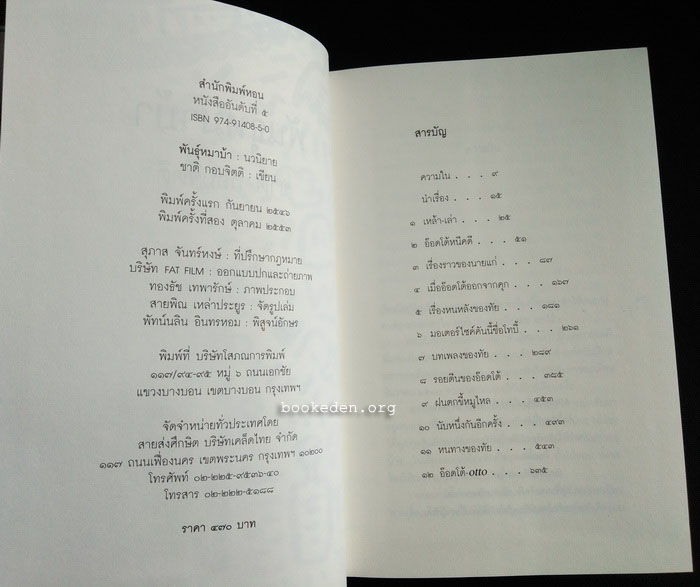 สำนักพิมพ์หอน
หนังสืออันดับที่ ๕
ISBN 974-91408-5-0
พันธุ์หมาบ้า : นวนิยาย
ชาติ กอบจิตติ : เขียน
พิมพ์ครั้งแรก กันยายน ๒๕๔๖
พิมพ์ครั้งที่สอง ตุลาคม ๒๕๕๓
สุภาส จันทร์หงษ์ : ที่ปรึกษากฎหมาย
บริษัท FAT FILM : ออกแบบปกและถ่ายภาพ
ทองธัช เทพารักษ์ : ภาพประกอบ
สายพิณ เหล่าประยูร : จัดรูปเล่ม
พัทน์นลิน อินทรหอม : พิสูจน์อักษร
พิมพ์ที่ บริษัทโสภณการพิมพ์
๑๑๗/๙๔-๙๕ หมู่ ๖ ถนนเอกชัย
แขวงบางบอน เขตบางบอน กรุงเทพฯ
จัดจำหน่ายทั่วประเทศโดย
สายส่งศึกษิต บริษัทเคล็ดไทย จำกัด
๑๑๗ ถนนเฟื่องนคร เขตพระนคร กรุงเทพฯ ๑๐๒๐๐
โทรศัพท์ ๐๒-๒๒๕-๙๕๓๖-๔๐
โทรสาร ๐๒-๒๒๒-๕๑๘๘
ราคา ๔๗๐ บาท
สารบัญ
ความใน . . . ๙
นำเรื่อง . . . ๑๕
๑ เหล้า-เล่า . . . ๒๕
๒ อ๊อตโต้หนีคดี . . . ๕๑
๓ เรื่องราวของนายแก่ . . . ๘๗
๔ เมื่ออ๊อตโต้ออกจากคุก . . . ๑๖๗
๕ เรื่องหนหลังของทัย . . . ๑๘๑
๖ มอเตอร์ไซค์คันนี้ชื่อโทบี้ . . . ๒๖๑
๗ บทเพลงของทัย . . . ๒๘๙
๘ รอยตีนของอ๊อตโต้ . . . ๓๘๕
๙ ฝนตกขี้หมูไหล . . . ๔๕๓
๑๐ นับหนึ่งกันอีกครั้ง . . . ๔๙๓
๑๑ หนทางของทัย . . . ๕๔๓
๑๒ อ๊อตโต้-otto . . . ๖๓๕
bookeden.org